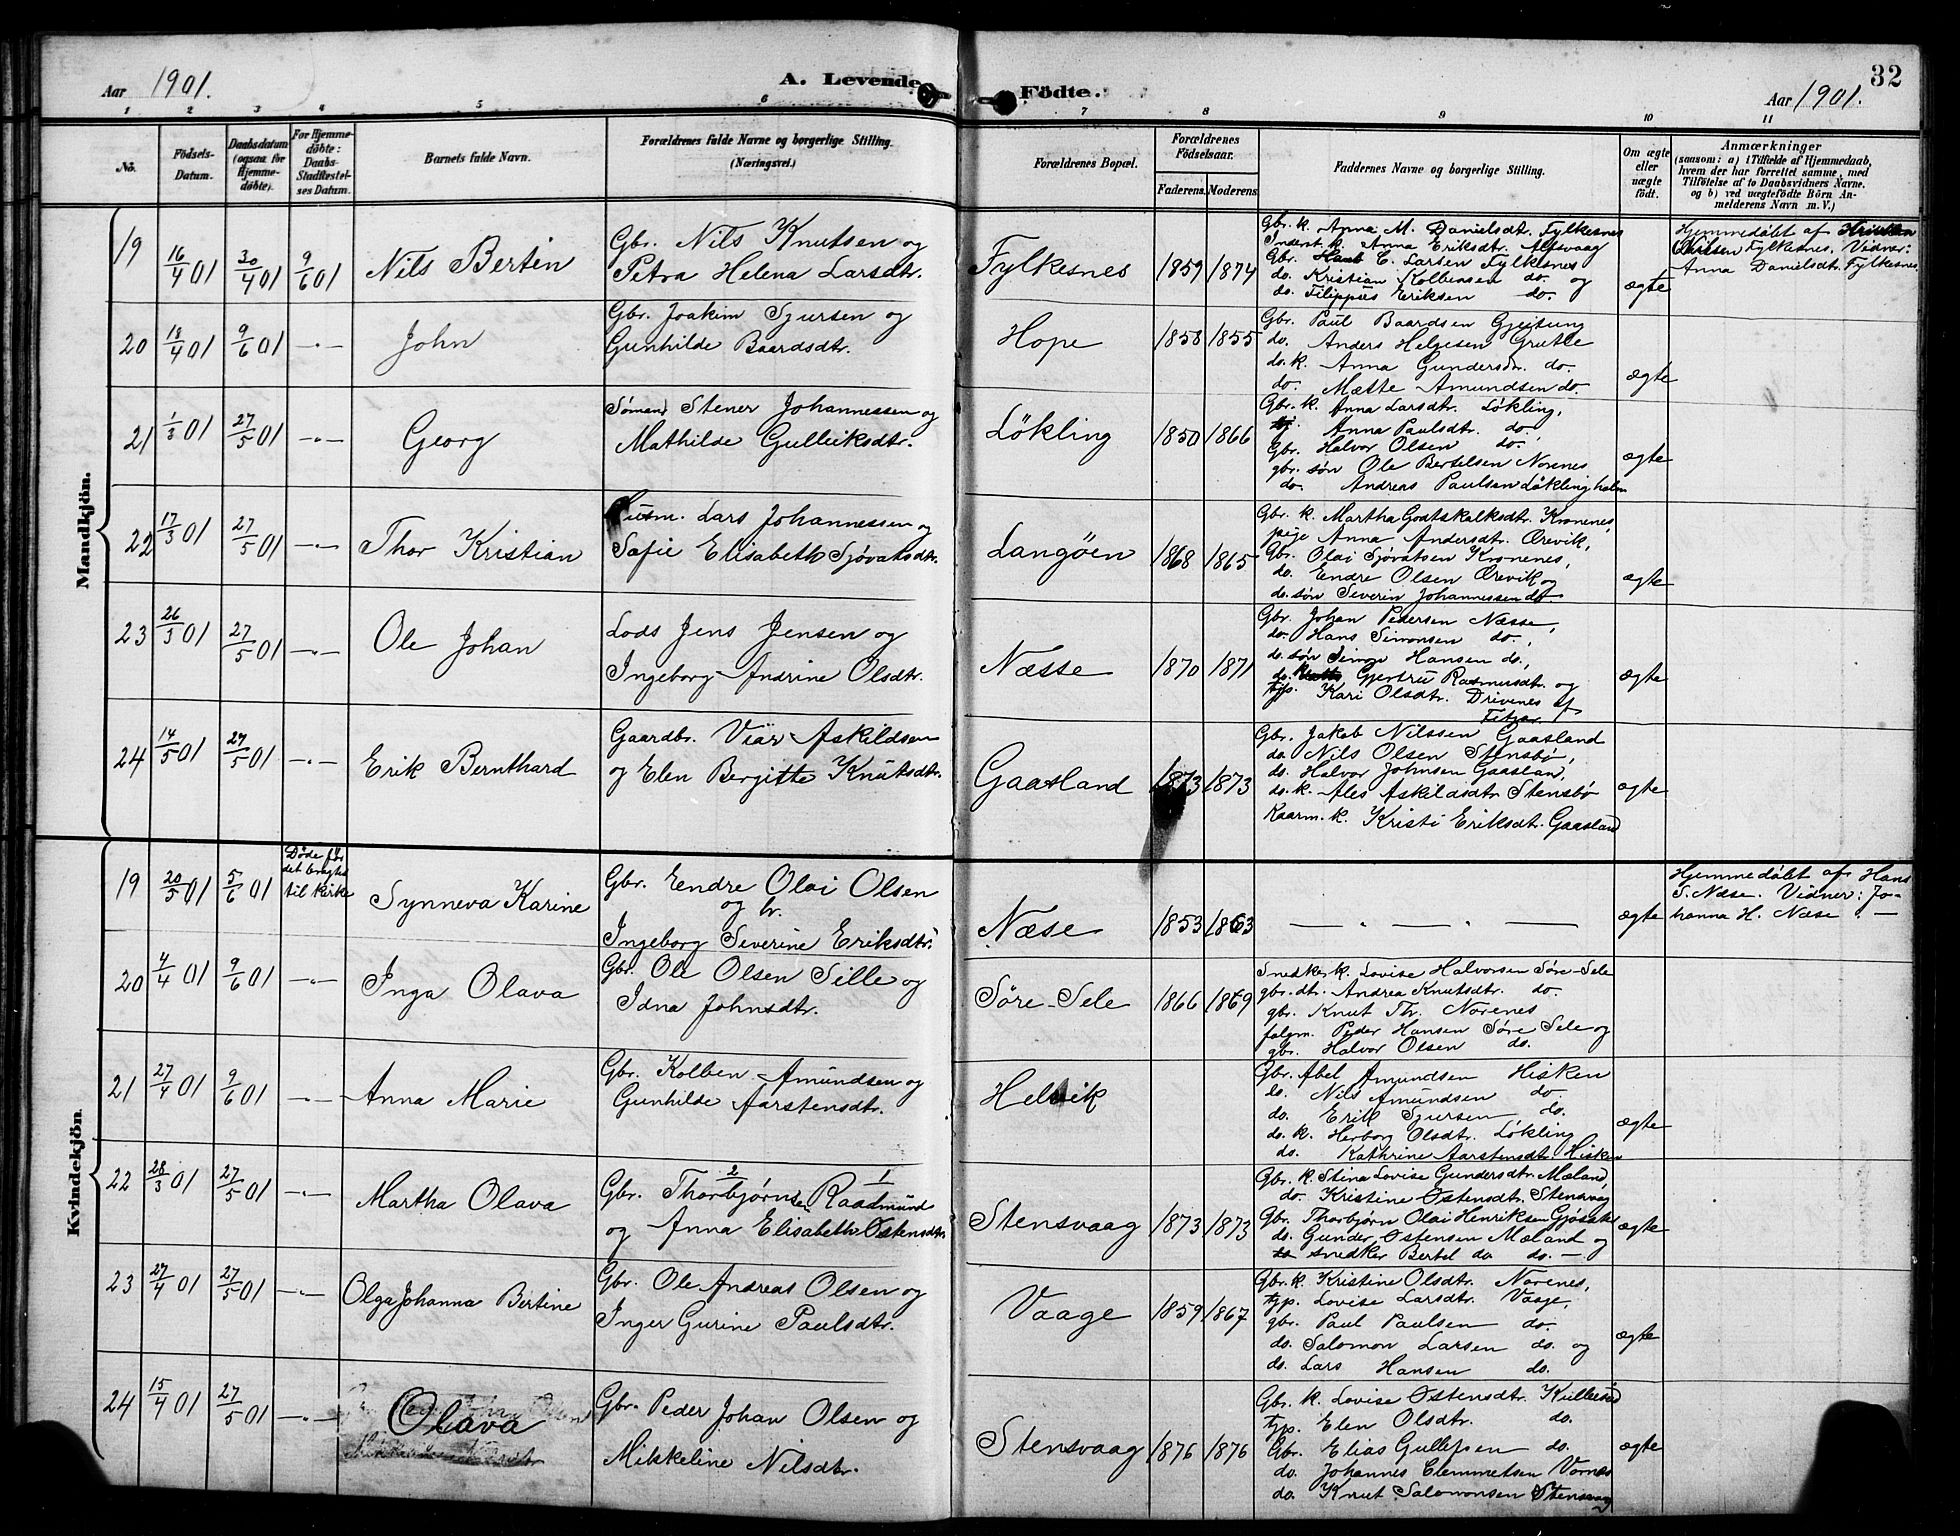 Aar 1901.
A. Levende Födte.
32
Aar 1901.
1 2 3 4 5 6 7 8 9 10 11
No.
Födsels-Datum.
Daabsdatum (ogsaa for Hjemmedöbte).
For Hjemmedöbte: Daabs-Stadfæstelses Datum.
Barnets fulde Navn.
Forældrenes fulde Navne og borgerlige Stilling. (Næringsvei.)
Forældrenes Bopæl.
Forældrenes Födselsaar.
Faderens. Moderens.
Faddernes Navne og borgerlige Stilling.
Om ægte eller uægte födt.
Anmærkninger
(saasom: a) i Tilfælde af Hjemmedaab,
hvem der har forrettet samme, med
Tilföielse af to Daabsvidners Navne,
og b) ved uægtefödte Börn An-
melderens Navn m. V.)
Mandkjön.
19 16/4 01 30/4 01 9/6 01 Nils Bertin
Gbr. Nils Knutsen og
Petra Helena Larsdtr.
Fylkesnes 1859 1874
Gbr. k. Anna M. Danielsdt. Fylkesnes
Inderst k. Anna Eriksdtr. Alfsvaag
Gbr. C. Larsen Fylkesnes
do. Kristian Kolbensen do. og
do. Filippus Eriksen do.
ægte
Hjemmedøbt af
Nilsen Fylkesnes. Vidner:
Anna Danielsdtr. Fylkesnes
20 18/4 01 9/6 01 -"- John
Gbr. Joakim Sjursen og
Gunhilde Baardsdtr.
Hope 1858 1855
Gbr. Paul Baardsen Gjeitung
do. Anders Helgesen Grutle
do. k. Anna Gundersdr. do.
do. Mætte Amundsen do.
ægte
21 1/3 01 27/5 01 -"- Georg
Sømand Stener Johannessen og
Mathilde Gulleiksdtr.
Løkling 1850 1866
Gbr. k. Anna Larsdtr. Løkling,
Anna Paulsdtr. do,
Gbr. Halvor Olsen do.
gbr. søn Ole Bertelsen Norenes
do. Andreas Paulsen Løklingholm
ægte
22 17/3 01 27/5 01 -"- Thor Kristian
Husm. Lars Johannessen og
Sofie Elisabeth Sjøvatsdtr.
Langøen 1868 1865
Gbr. k. Martha Godtskalksdtr. Kronenes,
pige Anna Andersdtr. Ørevik,
Gbr. Olai Sjøvatsen Kronenes,
do. Endre Olsen Ørevik og
do. søn Severin Johannessen do.
ægte
23 27/5 01 -"- Ole Johan
Lods Jens Jensen og
Ingeborg Andrine Olsdtr.
Næsse 1870 1871
Gbr. Johan Pedersen Næsse,
do. Hans Simonsen do.,
do. søn Simon Hansen do.,
do. Gjertru Rasmusdtr. og
tjp. Kari Olsdtr. Drivenes af
Fitjar
ægte
24 14/5 01 27/5 01 -"- Erik Bernthard
Gaardbr. Viar Askildsen
og Elen Bergitte Knutsdtr.
Gaasland 1873 1873
Gbr. Jakob Nilssen Gaasland
do. Nils Olsen Stensbø,
do. Halvor Johnsen Gaaslan,
do. k. Ales Askildsdtr. Stensbø
Kaarm. k. Kristi Eriksdtr. Gaasland
ægte
Kvindekjön.
19 20/5 01 5/6 01 Døde før
det bragtes
til kirke
Synneva Karine
Gbr. Endre Olai Olsen
og hr.
Ingeborg Severine Eriksdtr.
Næse 1853 1863
— " — " —
ægte
Hjemmedøbt af Hans
S. Næse. Vidner: Jo-
hanna H. Næse. —
20 4/4 01 9/6 01 -"- Inga Olava
Gbr. Ole Olsen Sille og
Idna Johnsdtr.
Søre-Sele 1866 1869
Snedker k. Lovise Halvorsen Søre-Sele
gbr. dtr. Andrea Knutsdtr. do.
gbr. Knut Th. Norenes
Peder Hansen Søre Sele og
gbr. Halvor Olsen do.
21 27/4 01 9/6 01 -"- Anna Marie
Gbr. Kolben Amundsen og
Gunhilde Aarstensdtr.
Helvik
Gbr. Abel Amundsen Hisken
do. Nils Amundsen do.
do. Erik Sjursen do.
do. k. Herborg Olsdtr. Løkling
do. Kathrine Aarstensdtr. Hisken
ægte
22 28/3 01 27/5 01 -"- Martha Olava
2 1
Gbr. Thorbjørnse Raadmund
og Anna Elisabeth Østensdtr.
Stensvaag 1873 1873
Gbr. k. Stina Lovise Gundersdtr. Mæland,
do. Kristine Østensdtr. Stensvaag
Gbr. Thorbjørn Olai Henriksen
do. Gunder Østensen Mæland og
snedker Bertel do do. —
ægte
23 27/4 01 27/5 01 -"- Olga Johanna Bertine
Gbr. Ole Andreas Olsen og
Inger Gurine Paulsdtr.
Vaage 1859 1867
Gbr. k. Kristine Olsdtr. Norenes,
tjp. Lovise Larsdtr. Vaage,
gbr. Paul Paulsen do.
do. Salomon Larsen do. og
do. Lars Hansen do.
ægte
24 15/4 01 27/5 01 -"- Olava
Gbr. Peder Johan Olsen og
Mikkeline Nilsdtr.
Stensvaag 1876 1876
Gbr. k. Lovise Østensdtr.
tjp. Elen Olsdtr. do.
Gbr. Elias Gullefsen do.
do. Johannes Clemmetsen Vornes
do. Knut Salomonsen Stensvaag
ægte